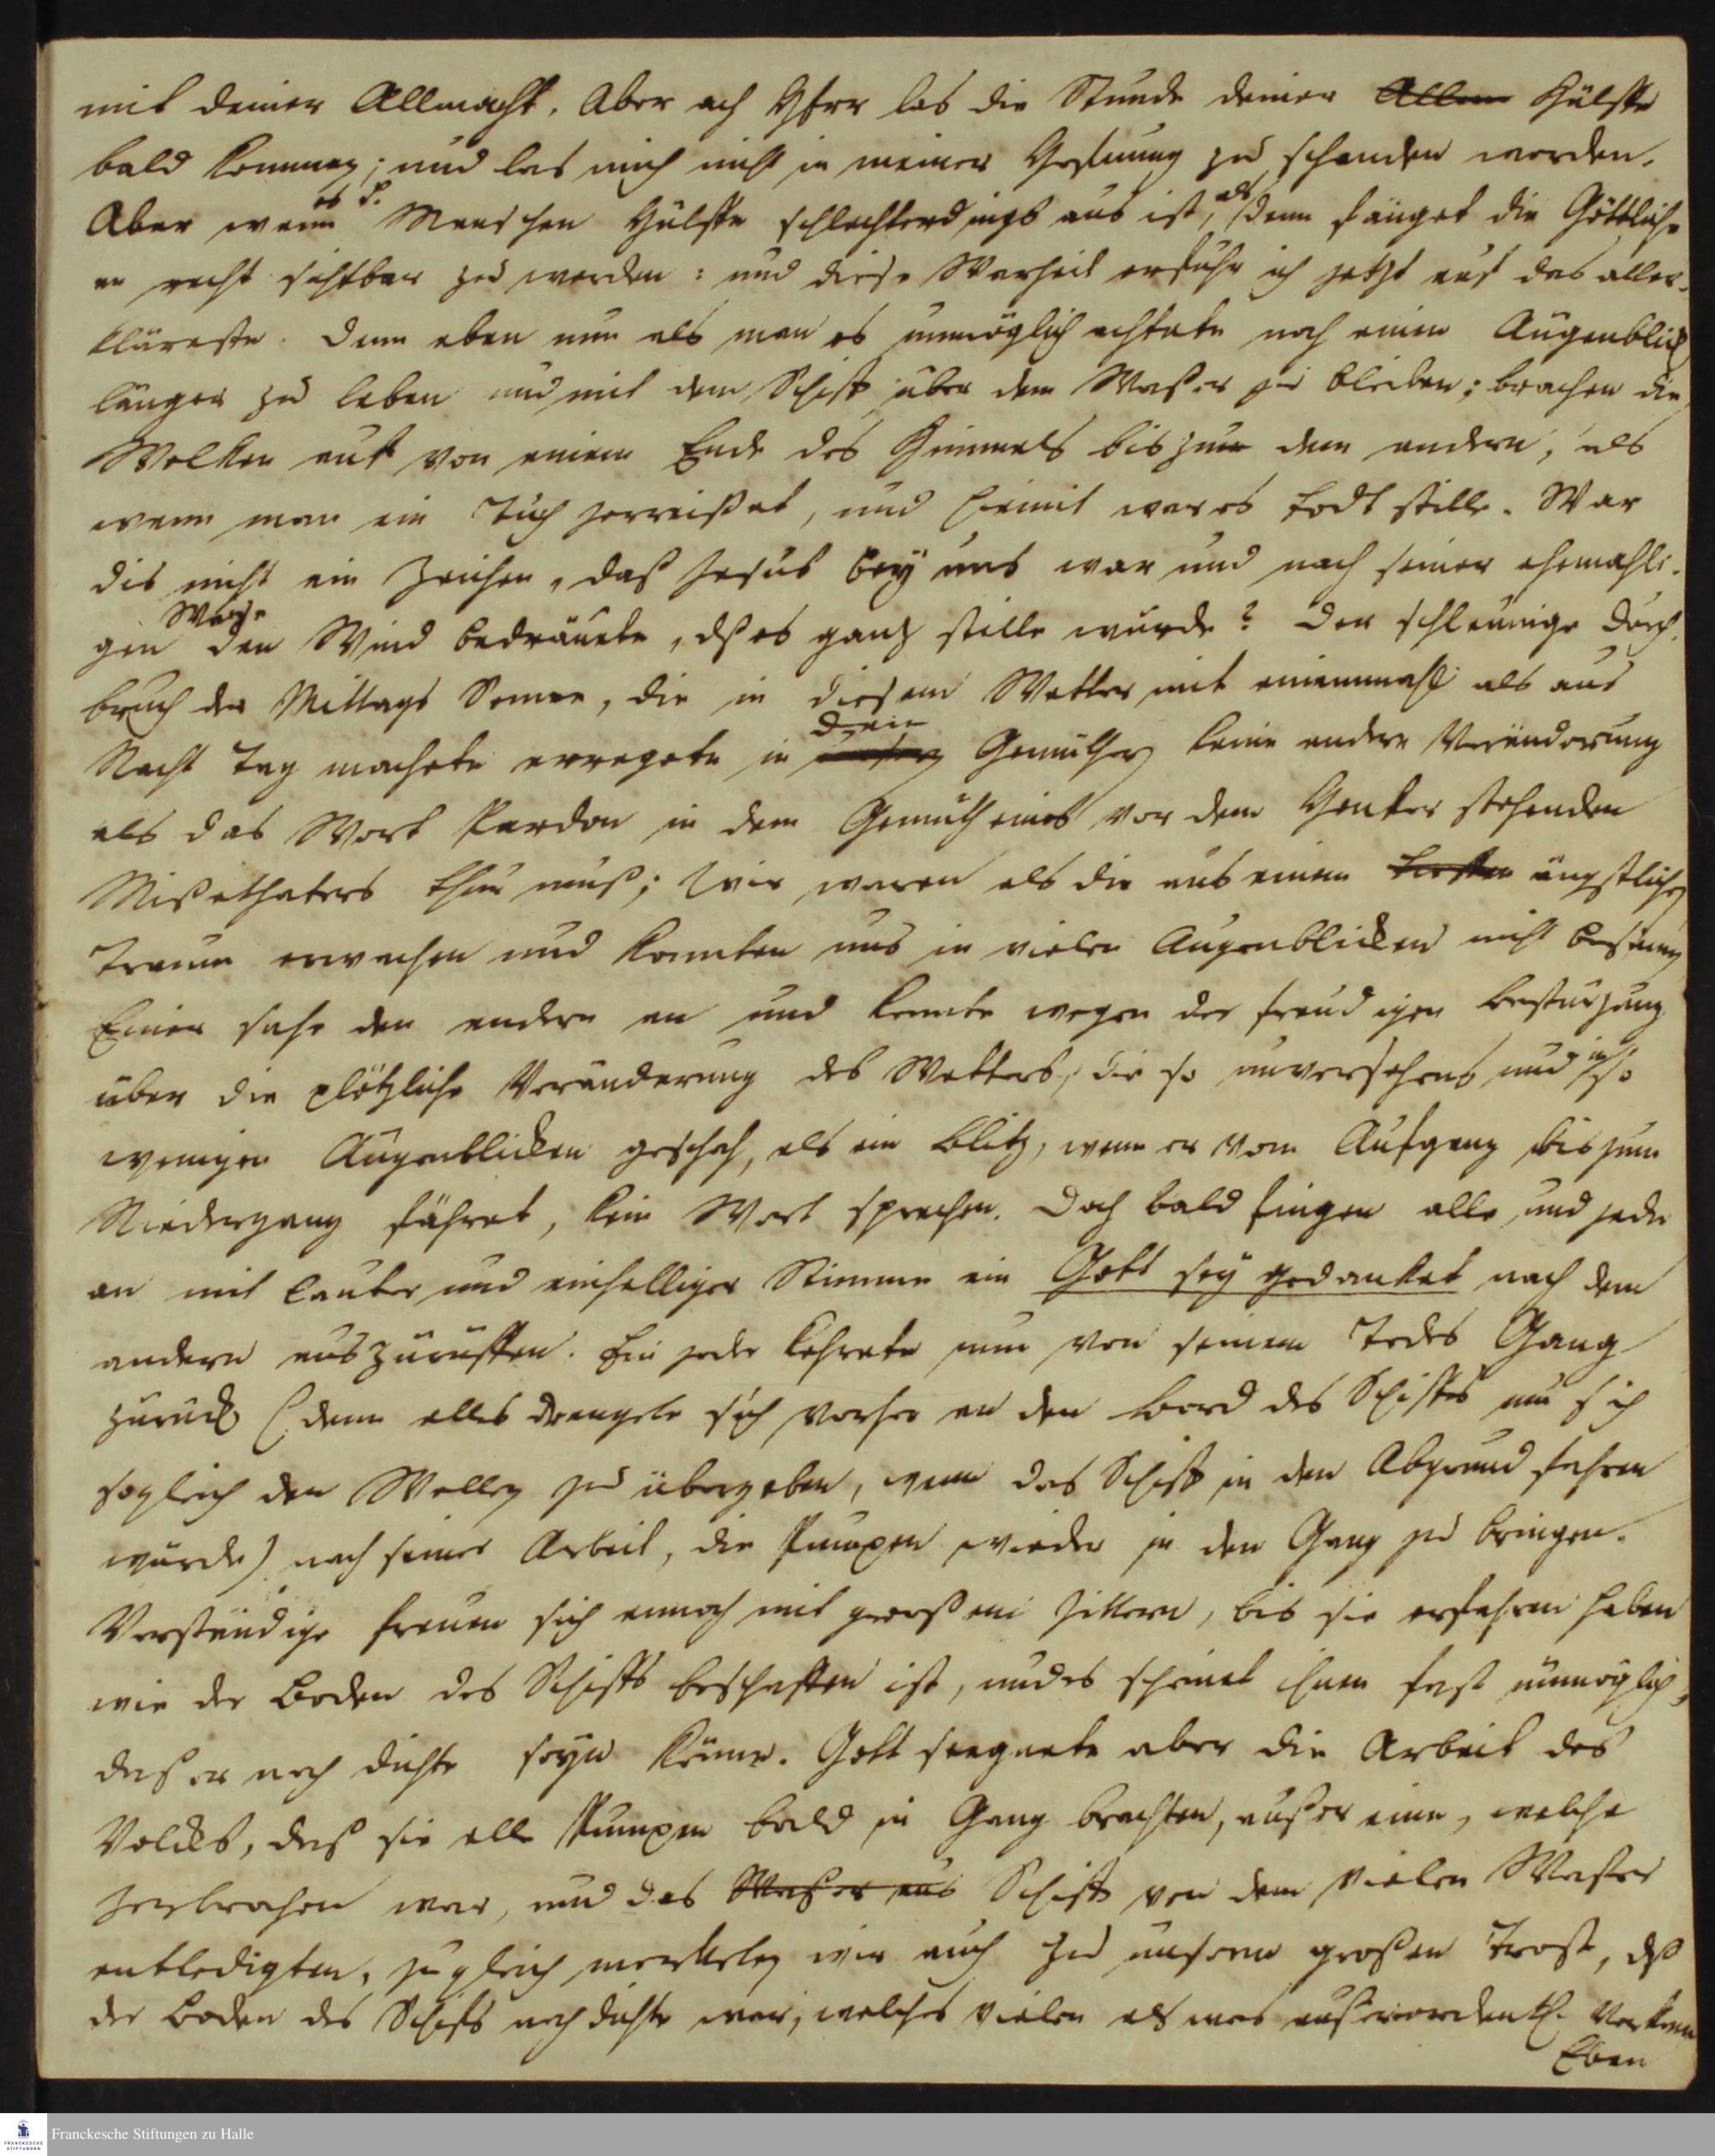 mit deiner Allmacht. Aber ach HErr las die Stunde deiner Allm Hülffe
bald kommen; und las mich nicht in meiner Hofnung zu schanden werden.
Aber wenn es d. Menschen Hülffe schlechterdings aus ist, als denn fänget die Göttliche
an recht sichtbar zu werden: und diese Warheit erfuhr ich jetzt auf das aller-
kläreste. Denn eben nun als man es unmöglich achtete noch einen Augenblick
länger zu leben und mit dem Schiff über dem Waßer zu bleiben; brachen die
Wolken auf von einem Ende des Himmels bis zum dem andern, als
wenn man ein Tuch zerreißet, und hiemit war es todt stille. War
dis nicht ein Zeichen, daß Jesus bey uns war und nach seiner ehemahli-
gen Weise den Wind bedräuete, dß es ganz stille wurde? Der schleunige Durch-
bruch der Mittags Sonne, die in diesem Wetter mit einemmahl als aus
Nacht Tag machete erregete in dein Gemüther keine andere Veränderung
als das Wort Pardon in dem Gemüth eines vor dem Henker stehenden
Mißethaters thun muß; Wir waren als die aus einem tieffen ängstlichen
Traum erwachen und konnten uns in vielen Augenblicken nicht besinnen
Einer sahe den andern an und konnte wegen der freudigen Bestürzung
über die plötzliche Veränderung des Wetters, die so unversehens und in so
wenigen Augenblicken geschah, als ein Blitz, wenn er vom Aufgang bis zum
Niedergang fähret, kein Wort sprechen. Doch bald fingen alle und jede
an mit lauter und einhelliger Stimme ein Gott sey gedanket nach dem
andern auszuruffen. Ein jeder kehrete nun von seinem Todes Gang
zurück (denn alles drengete sich vorher an den Bord des Schiffes um sich
sogleich den Wellen zu übergeben, wenn das Schiff in den Abgrund fahren
würde) nach seiner Arbeit, die Pumpen wieder in den Gang zu bringen.
Verständige freuen sich annoch mit großem Zittern, bis sie erfahren haben
wie der Boden des Schiffs beschaffen ist, und es scheinet ihnen fast unmöglich,
daß er noch dichte seyn könne. Gott seegnete aber die Arbeit des
Volcks, daß sie alle Pumpen bald in Gang brachten, außer eine, welche
zerbrochen war, und das Waßer aus Schiff von dem vielen Waßer
entledigten, zugleich merketen wir auch zu unserm großen Trost, dß
der Boden des Schiffs noch dichte war, welches vielen als was außerordentl. vorkam
Eben
Franckesche Stiftungen zu Halle